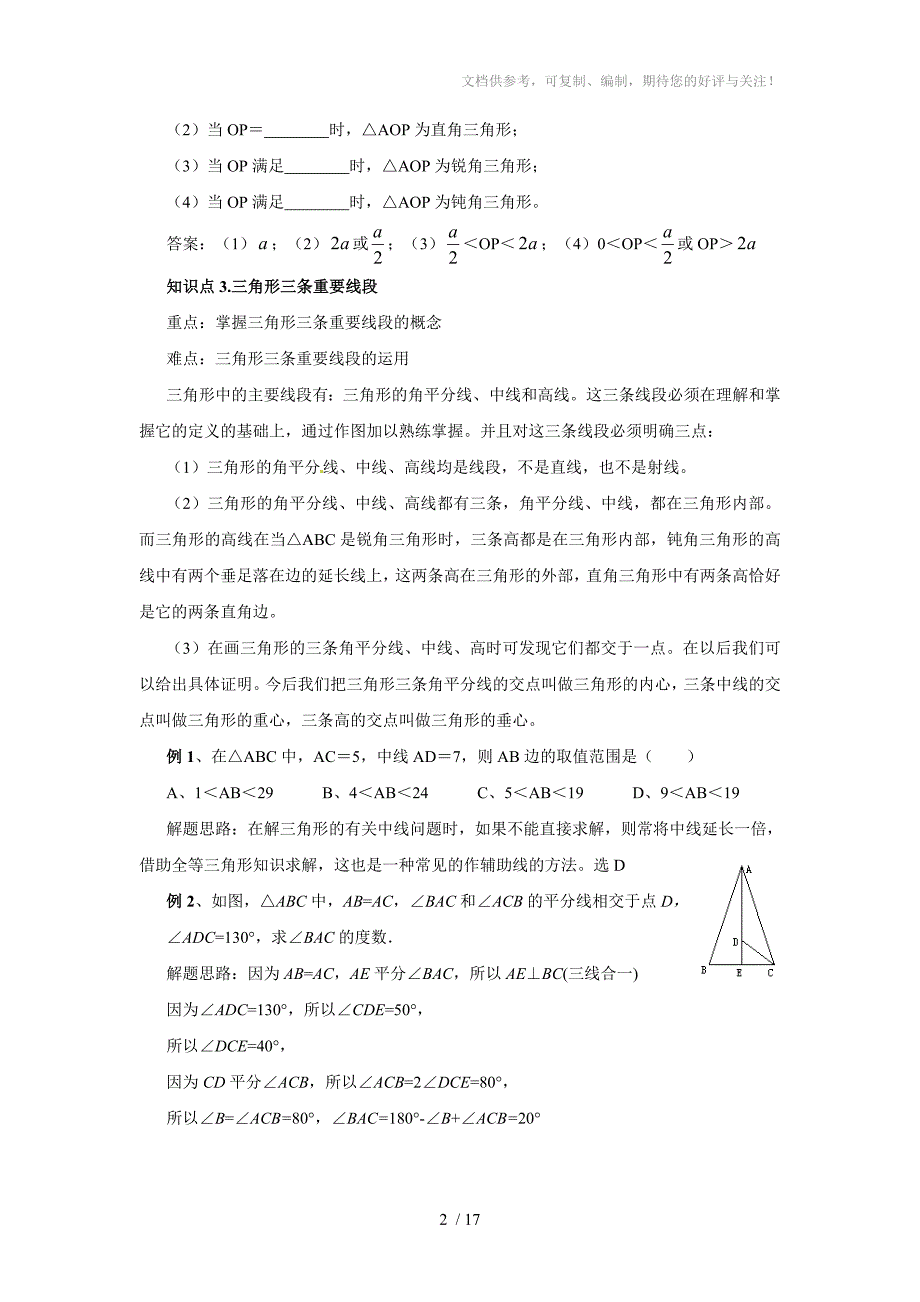 文档供参考，可复制、编制，期待您的好评与关注！
（2）当 OP＝________时，△AOP 为直角三角形；
（3）当 OP 满足________时，△AOP 为锐角三角形；
（4）当 OP 满足________时，△AOP 为钝角三角形。
答案：（1） a ；（2） 2a 或 a/2 ；（3） a/2 ＜OP＜ 2a ；（4）0＜OP＜ a/2 或 OP＞ 2a
知识点 3.三角形三条重要线段
重点：掌握三角形三条重要线段的概念
难点：三角形三条重要线段的运用
三角形中的主要线段有：三角形的角平分线、中线和高线。这三条线段必须在理解和掌
握它的定义的基础上，通过作图加以熟练掌握。并且对这三条线段必须明确三点：
（1）三角形的角平分线、中线、高线均是线段，不是直线，也不是射线。
（2）三角形的角平分线、中线、高线都有三条，角平分线、中线，都在三角形内部。
而三角形的高线在当△ABC 是锐角三角形时，三条高都是在三角形内部，钝角三角形的高
线中有两个垂足落在边的延长线上，这两条高在三角形的外部，直角三角形中有两条高恰好
是它的两条直角边。
（3）在画三角形的三条角平分线、中线、高时可发现它们都交于一点。在以后我们可
以给出具体证明。今后我们把三角形三条角平分线的交点叫做三角形的内心，三条中线的交
点叫做三角形的重心，三条高的交点叫做三角形的垂心。
例 1、在△ABC 中，AC＝5，中线 AD＝7，则 AB 边的取值范围是（　　）
A、1＜AB＜29　　B、4＜AB＜24　　C、5＜AB＜19　　D、9＜AB＜19
解题思路：在解三角形的有关中线问题时，如果不能直接求解，则常将中线延长一倍，
借助全等三角形知识求解，这也是一种常见的作辅助线的方法。选 D
例 2、如图，△ABC 中，AB=AC，∠BAC 和∠ACB 的平分线相交于点 D，
∠ADC=130°，求∠BAC 的度数．
解题思路：因为 AB=AC，AE 平分∠BAC，所以 AE⊥BC(三线合一)
因为∠ADC=130°，所以∠CDE=50°，
所以∠DCE=40°，
因为 CD 平分∠ACB，所以∠ACB=2∠DCE=80°，
所以∠B=∠ACB=80°，∠BAC=180°-∠B+∠ACB=20°
A
D
B E C
2 / 17